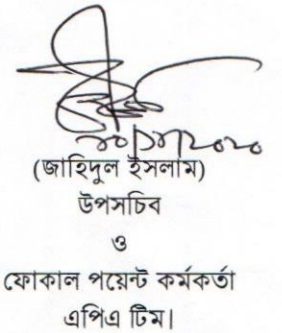 (জাহিদুল ইসলাম)
উপসচিব
ও
ফোকাল পয়েন্ট কর্মকর্তা
এপিএ টিম।